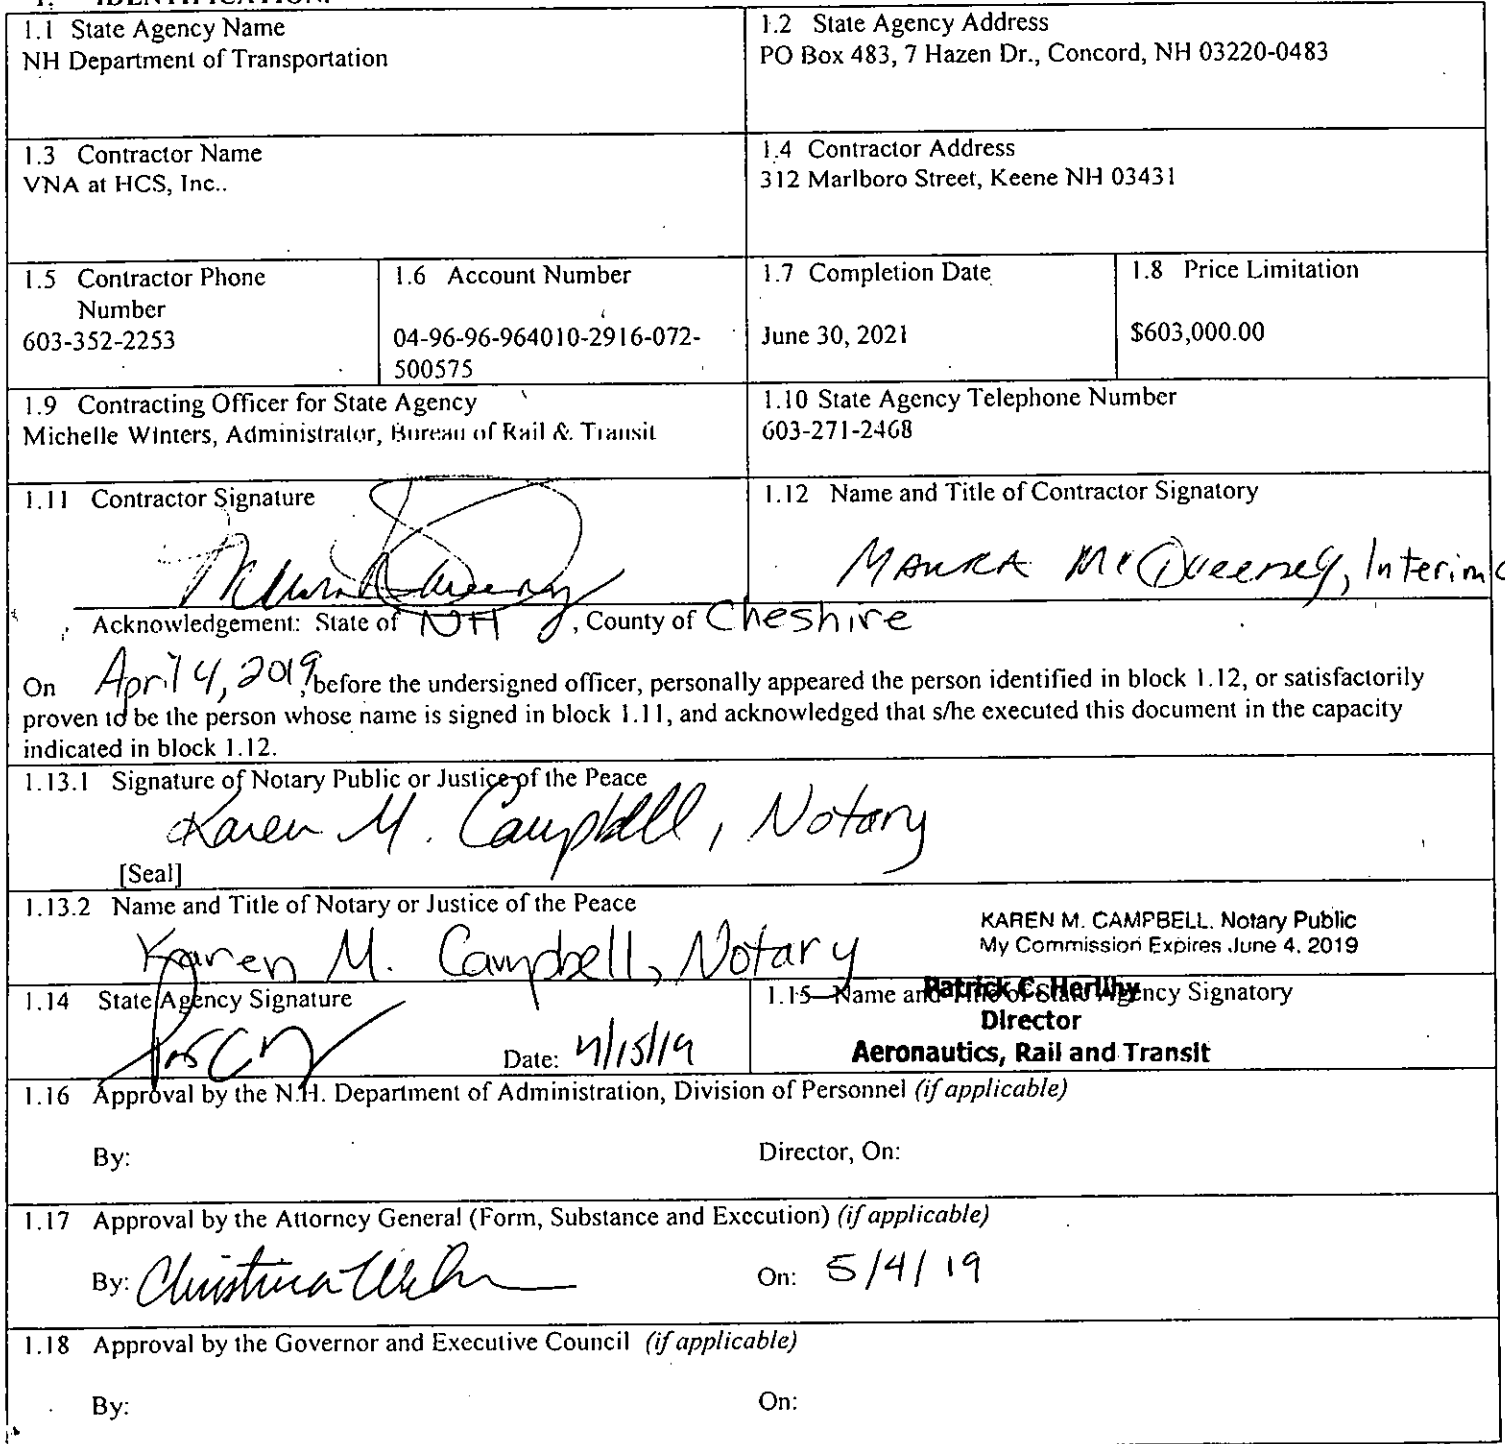 1. IDENTIFICATION.
1.1 State Agency Name
NH Department of Transportation
1.2 State Agency Address
PO Box 483, 7 Hazen Dr., Concord, NH 03220-0483
1.3 Contractor Name
VNA at HCS, Inc..
1.4 Contractor Address
312 Marlboro Street, Keene NH 03431
1.5 Contractor Phone
Number
603-352-2253
1.6 Account Number
04-96-96-964010-2916-072-
500575
1.7 Completion Date
June 30, 2021
1.8 Price Limitation
$603,000.00
1.9 Contracting Officer for State Agency
Michelle Winters, Administrator, Bureau of Rail & Transit
1.10 State Agency Telephone Number
603-271-2468
1.11 Contractor Signature
1.12 Name and Title of Contractor Signatory
Maura McQueeney, Interim
Acknowledgement: State of NH, County of Cheshire
On April 4, 2019, before the undersigned officer, personally appeared the person identified in block 1.12, or satisfactorily
proven to be the person whose name is signed in block 1.11, and acknowledged that s/he executed this document in the capacity
indicated in block 1.12.
1.13.1 Signature of Notary Public or Justice of the Peace
Karen M. Campbell, Notary
[Seal]
1.13.2 Name and Title of Notary or Justice of the Peace
Karen M. Campbell, Notary
KAREN M. CAMPBELL. Notary Public
My Commission Expires June 4, 2019
1.14 State Agency Signature
Date: 4/15/19
1.15 Name and Title of State Agency Signatory
Patrick C. Herlihy
Director
Aeronautics, Rail and Transit
1.16 Approval by the N.H. Department of Administration, Division of Personnel (if applicable)
By:
Director, On:
1.17 Approval by the Attorney General (Form, Substance and Execution) (if applicable)
By: Christina
On: 5/4/19
1.18 Approval by the Governor and Executive Council (if applicable)
By:
On: